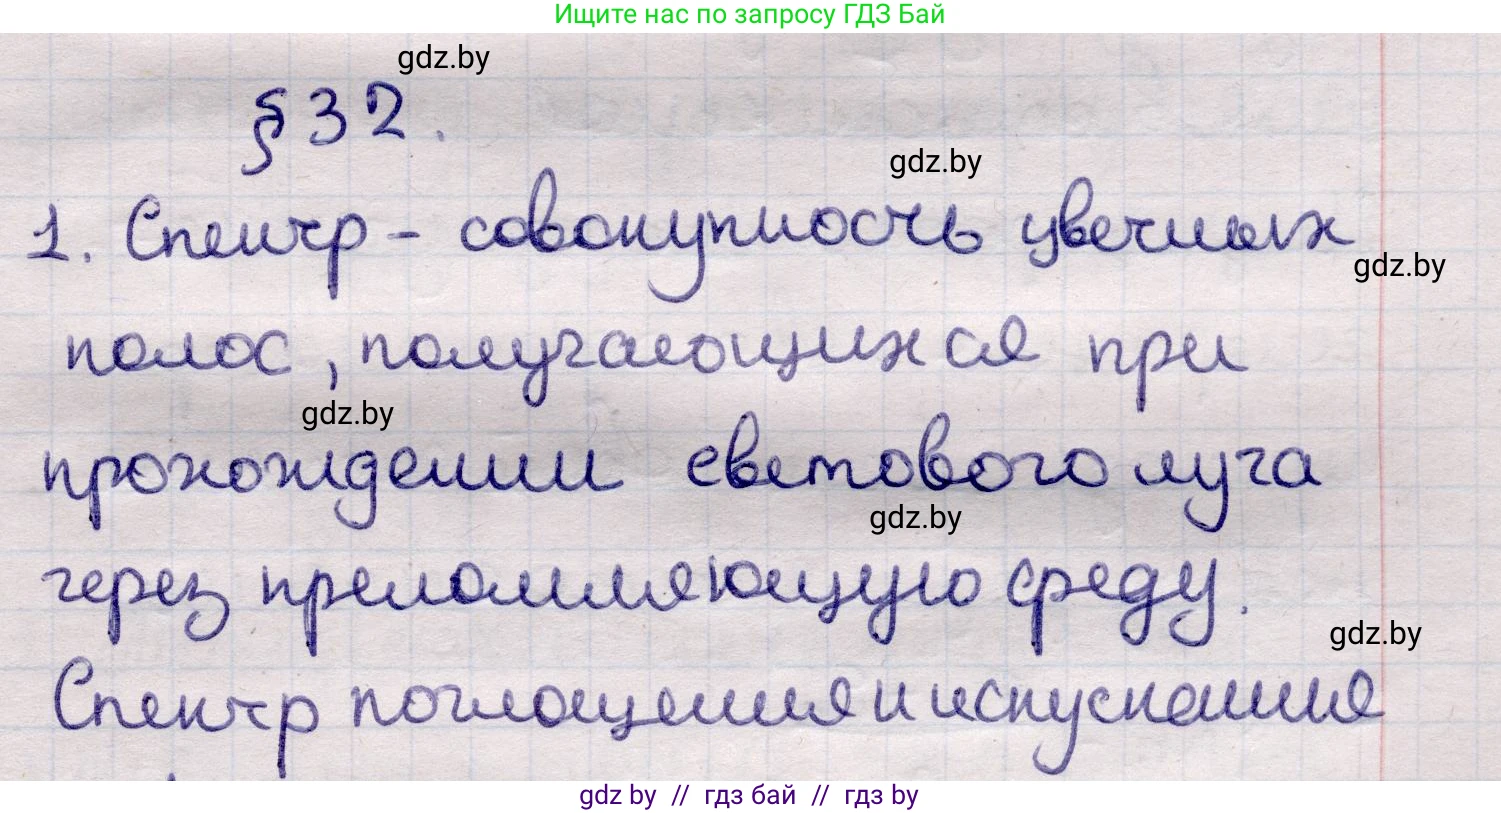 Ищите нас по запросу ГДЗ Бай
gdz.by
§32.
gdz.by
1. Спектр - совокупность цветных
gdz.by
полос, получающихся при
gdz.by
прохождении светового луча
gdz.by
через преломляющую среду.
gdz.by
Спектр поглощения и испускания
gdz by // гдз бай // гдз by